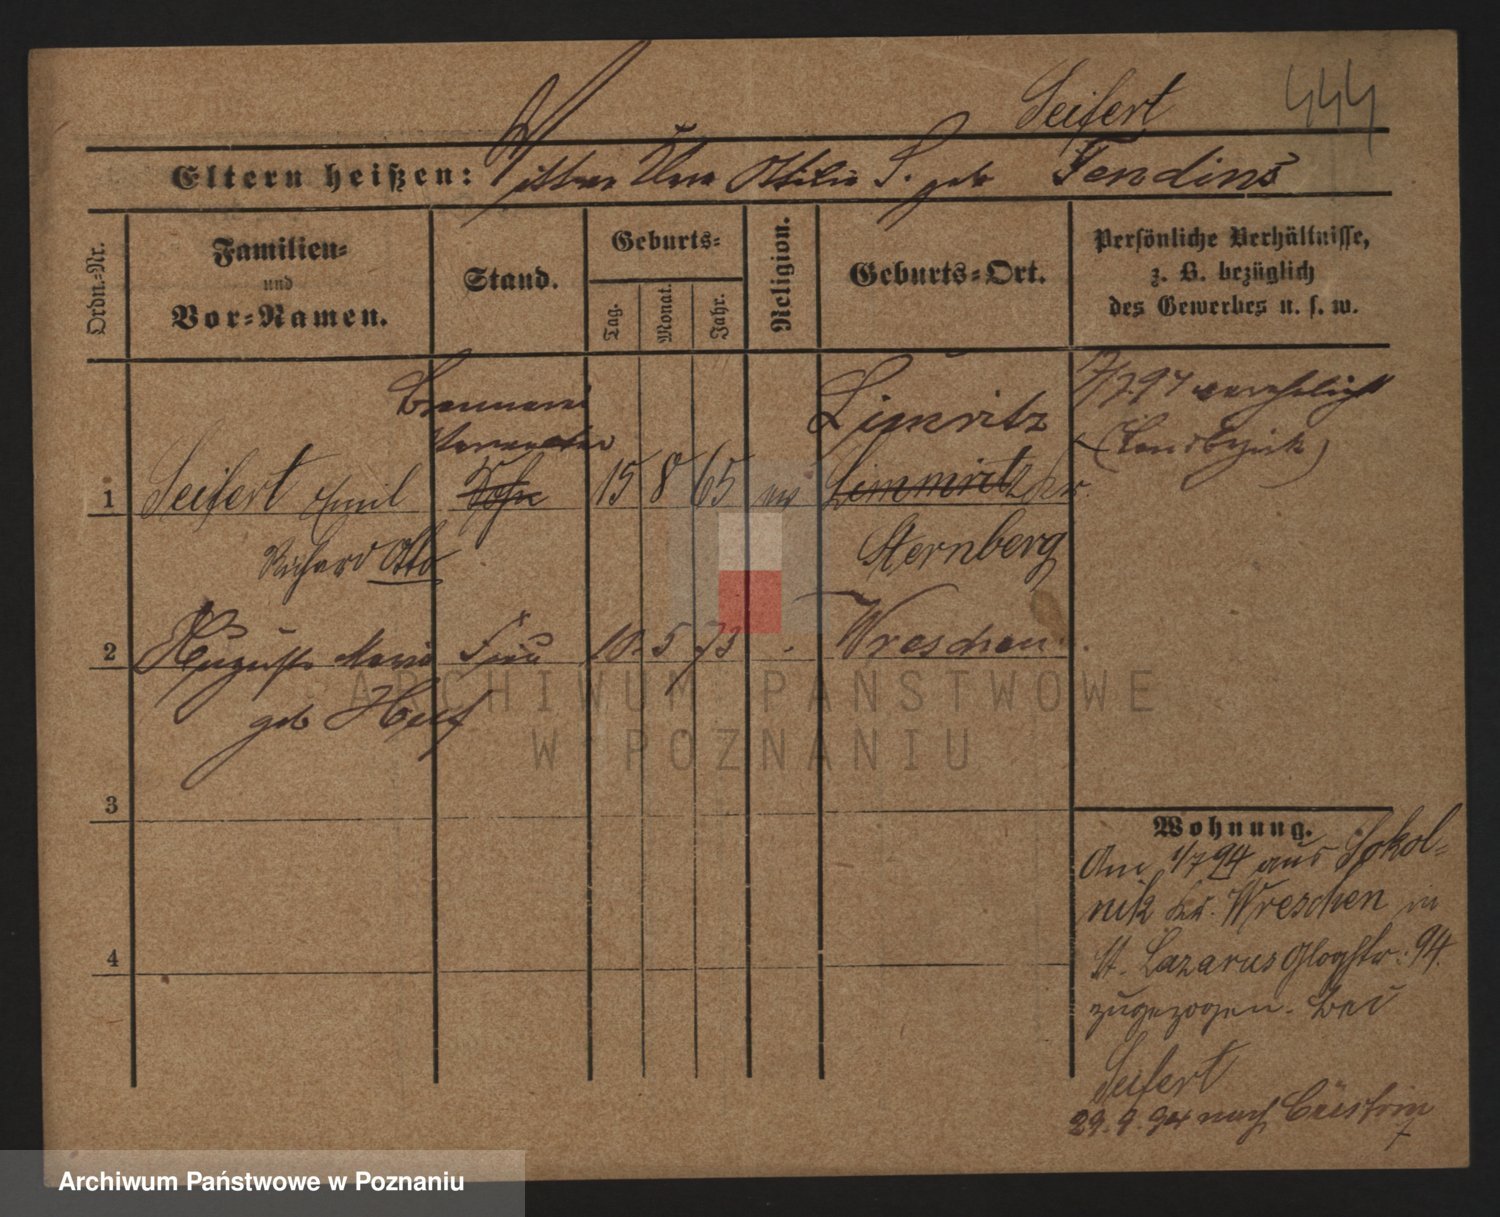 Seifert
444
Eltern heißen: Ottilie S. geb Tendins
Ordn.-Nr.
Familien-
und
Vor-Namen.
Stand.
Geburts-
Tag.
Monat.
Jahr.
Religion.
Geburts-Ort.
Persönliche Verhältnisse,
z. B. bezüglich
des Gewerbes u. s. w.
Brennerei
Verwalter
Limritz
verehelicht
(Landbezirk)
1 Seifert Emil 15 8 65 ev Limmritz Kr.
Richard Otto
Sternberg
2 Auguste Marie Frau 10. 5 73 Wreschen
geb
3
4
Wohnung.
Am 1/7 94 aus Sokol-
nik Kr. Wreschen in
St. Lazarus Glogstr. 94.
zugezogen. bei
Seifert
29.9.94 nach Cüstrin
ARCHIWUM PAŃSTWOWE
W POZNANIU
Archiwum Państwowe w Poznaniu